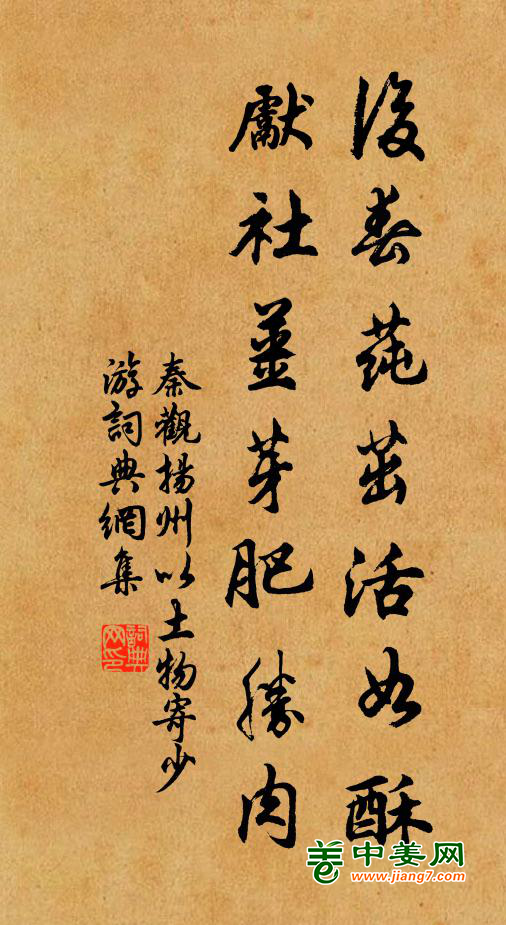 後春蒓茁活如酥
獻社薑芽肥勝肉
秦觀揚州以土物寄少
游詞典網集
詞典
网印
中姜网
www.jiang7.com